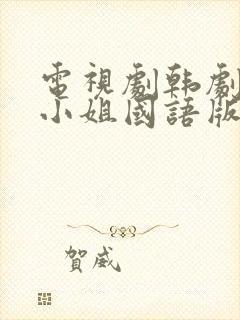 電視劇韩劇
小姐國語版
賀威